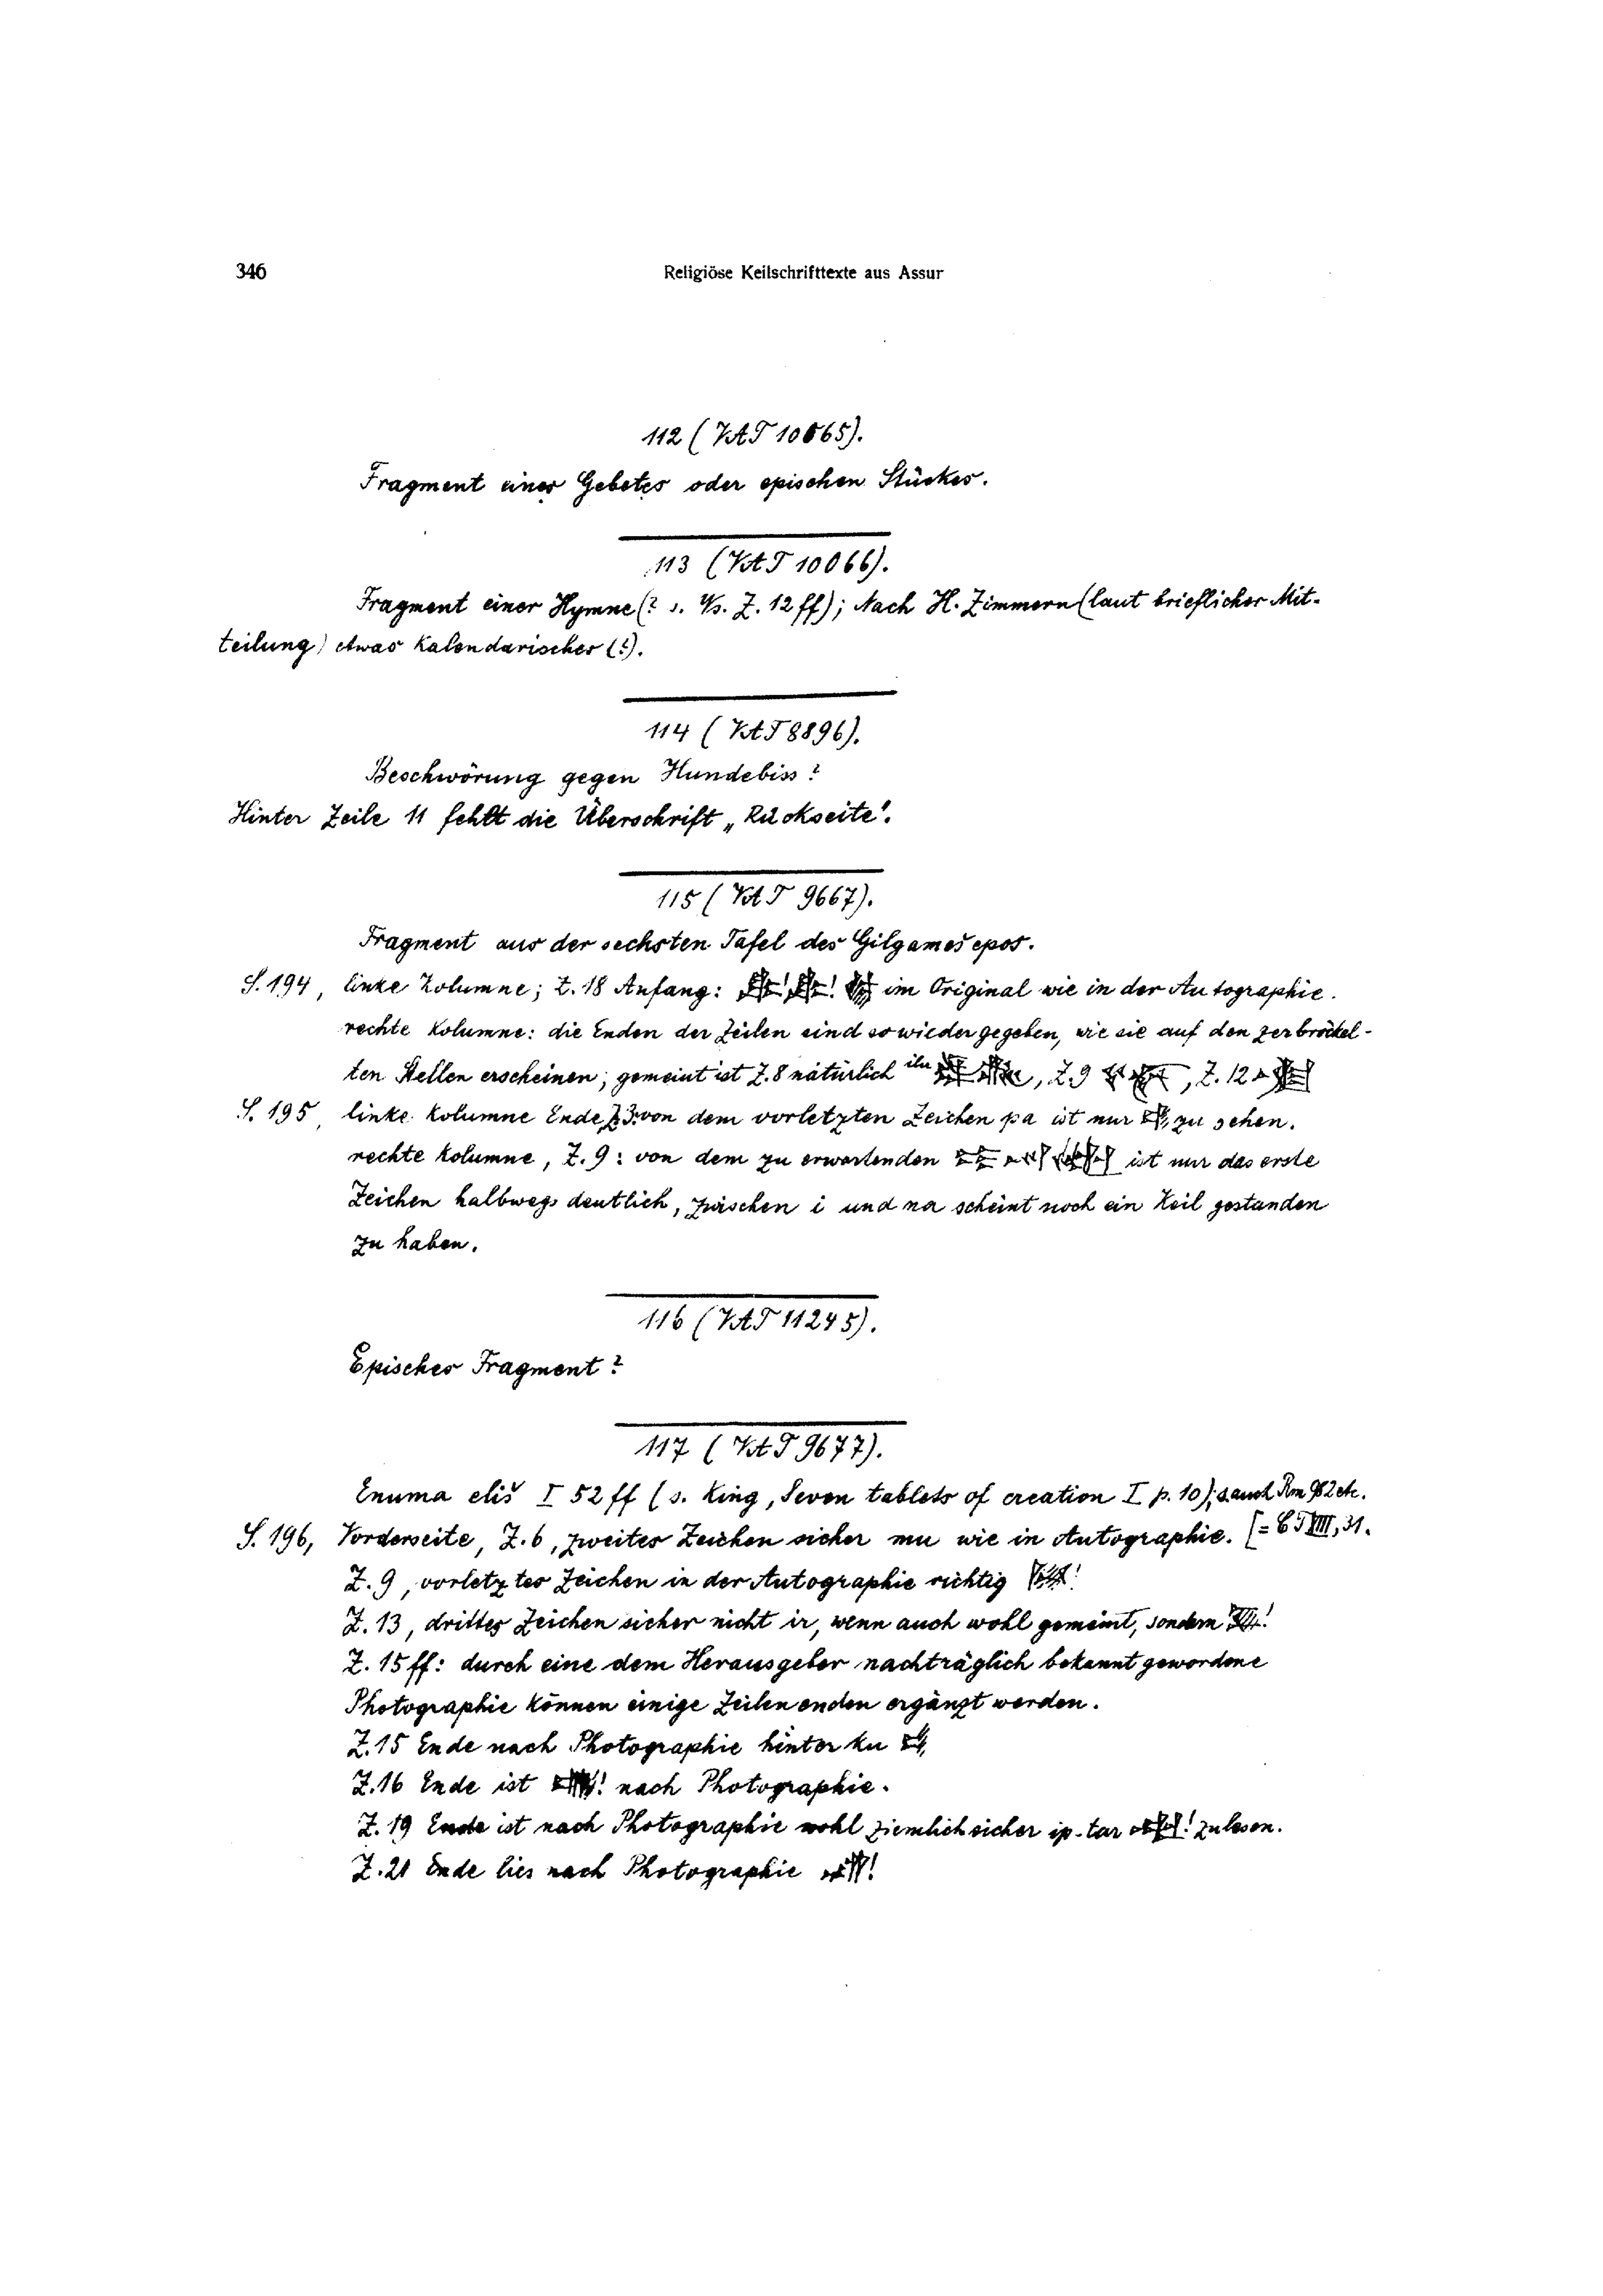 346
Religiöse Keilschrifttexte aus Assur
112 (VAT 10065).
Fragment eines Gebetes oder epischen Stückes.
113 (VAT 10066).
Fragment einer Hymne (? s. Vs. Z. 12 ff); Nach H. Zimmern (laut brieflicher Mit-
teilung) etwas Kalendarisches (?).
114 (VAT 8896).
Beschwörung gegen Hundebiss?
Hinter Zeile 11 fehlt die Überschrift „Rückseite".
115 (VAT 9667).
Fragment aus der sechsten Tafel des Gilgamešepos.
S. 194, linke Kolumne; Z. 18 Anfang: im Original wie in der Autographie.
rechte Kolumne: die Enden der Zeilen sind so wiedergegeben, wie sie auf den zerbröckel-
ten Stellen erscheinen; gemeint ist Z. 8 natürlich ilu , Z. 9 , Z. 12
S. 195, linke Kolumne Ende Z. 3: von dem vorletzten Zeichen pa ist nur zu sehen.
rechte Kolumne, Z. 9: von dem zu erwartenden ist nur das erste
Zeichen halbwegs deutlich, zwischen i und na scheint noch ein Keil gestanden
zu haben.
116 (VAT 11245).
Episches Fragment?
117 (VAT 9677).
Enuma eliš I 52 ff (s. King, Seven tablets of creation I p. 10); s. auch Rm 982 etc.
S. 196, Vorderseite, Z. 6, zweites Zeichen sicher mu wie in Autographie. [= CT XIII, 31.
Z. 9, vorletztes Zeichen in der Autographie richtig !
Z. 13, drittes Zeichen sicher nicht ir, wenn auch wohl gemeint, sondern !
Z. 15 ff: durch eine dem Herausgeber nachträglich bekannt gewordene
Photographie können einige Zeilenenden ergänzt werden.
Z. 15 Ende nach Photographie hinter ku
Z. 16 Ende ist ! nach Photographie.
Z. 19 Ende ist nach Photographie wohl ziemlich sicher ip-tar ! zu lesen.
Z. 21 Ende lies nach Photographie !